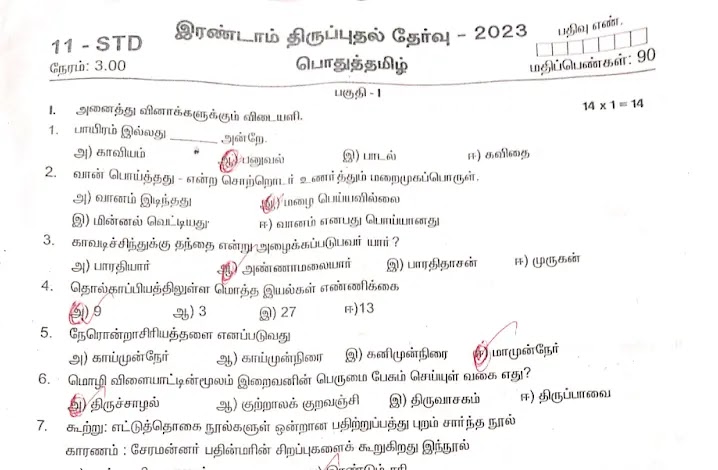 இரண்டாம் திருப்புதல் தேர்வு - 2023
11 - STD
பதிவு எண்.
நேரம்: 3.00
பொதுத்தமிழ்
மதிப்பெண்கள்: 90
பகுதி - I
I. அனைத்து வினாக்களுக்கும் விடையளி.
14 x 1 = 14
1. பாயிரம் இல்லது ______ அன்றே.
அ) காவியம் ஆ) பனுவல் இ) பாடல் ஈ) கவிதை
2. வான் பொய்த்தது - என்ற சொற்றொடர் உணர்த்தும் மறைமுகப்பொருள்.
அ) வானம் இடிந்தது ஆ) மழை பெய்யவில்லை
இ) மின்னல் வெட்டியது ஈ) வானம் என்பது பொய்யானது
3. காவடிச்சிந்துக்கு தந்தை என்று அழைக்கப்படுபவர் யார் ?
அ) பாரதியார் ஆ) அண்ணாமலையார் இ) பாரதிதாசன் ஈ) முருகன்
4. தொல்காப்பியத்திலுள்ள மொத்த இயல்கள் எண்ணிக்கை
அ) 9 ஆ) 3 இ) 27 ஈ)13
5. நேரொன்றாசிரியத்தளை எனப்படுவது
அ) காய்முன்நேர் ஆ) காய்முன்நிரை இ) கனிமுன்நிரை ஈ) மாமுன்நேர்
6. மொழி விளையாட்டின்மூலம் இறைவனின் பெருமை பேசும் செய்யுள் வகை எது?
அ) திருச்சாழல் ஆ) குற்றாலக் குறவஞ்சி இ) திருவாசகம் ஈ) திருப்பாவை
7. கூற்று: எட்டுத்தொகை நூல்களுள் ஒன்றான பதிற்றுப்பத்து புறம் சார்ந்த நூல்
காரணம் : சேரமன்னர் பதின்மரின் சிறப்புகளைக் கூறுகிறது இந்நூல்